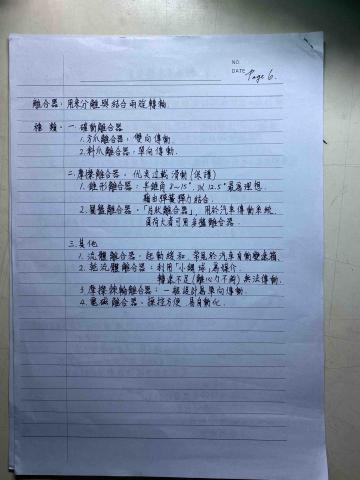 NO.
DATE Page 6.
離合器：用來分離與結合兩旋轉軸
種類：一.確動離合器
1.方爪離合器：雙向傳動
2.斜爪離合器：單向傳動
二.摩擦離合器：優美過載滑動(保護)
1.錐形離合器：半錐角8~15°，以12.5°最為理想
藉由彈簧彈力結合
2.圓盤離合器：「片狀離合器」，用於汽車傳動系統
負荷大者可用多盤離合器
三.其他
1.流體離合器：起動緩和，常見於汽車自動變速箱
2.乾流體離合器：利用「小鋼球」為媒介
轉速不足(離心力不夠)無法傳動
3.摩擦棘輪離合器：一般設計為單向傳動
4.電磁離合器：操控方便、易自動化